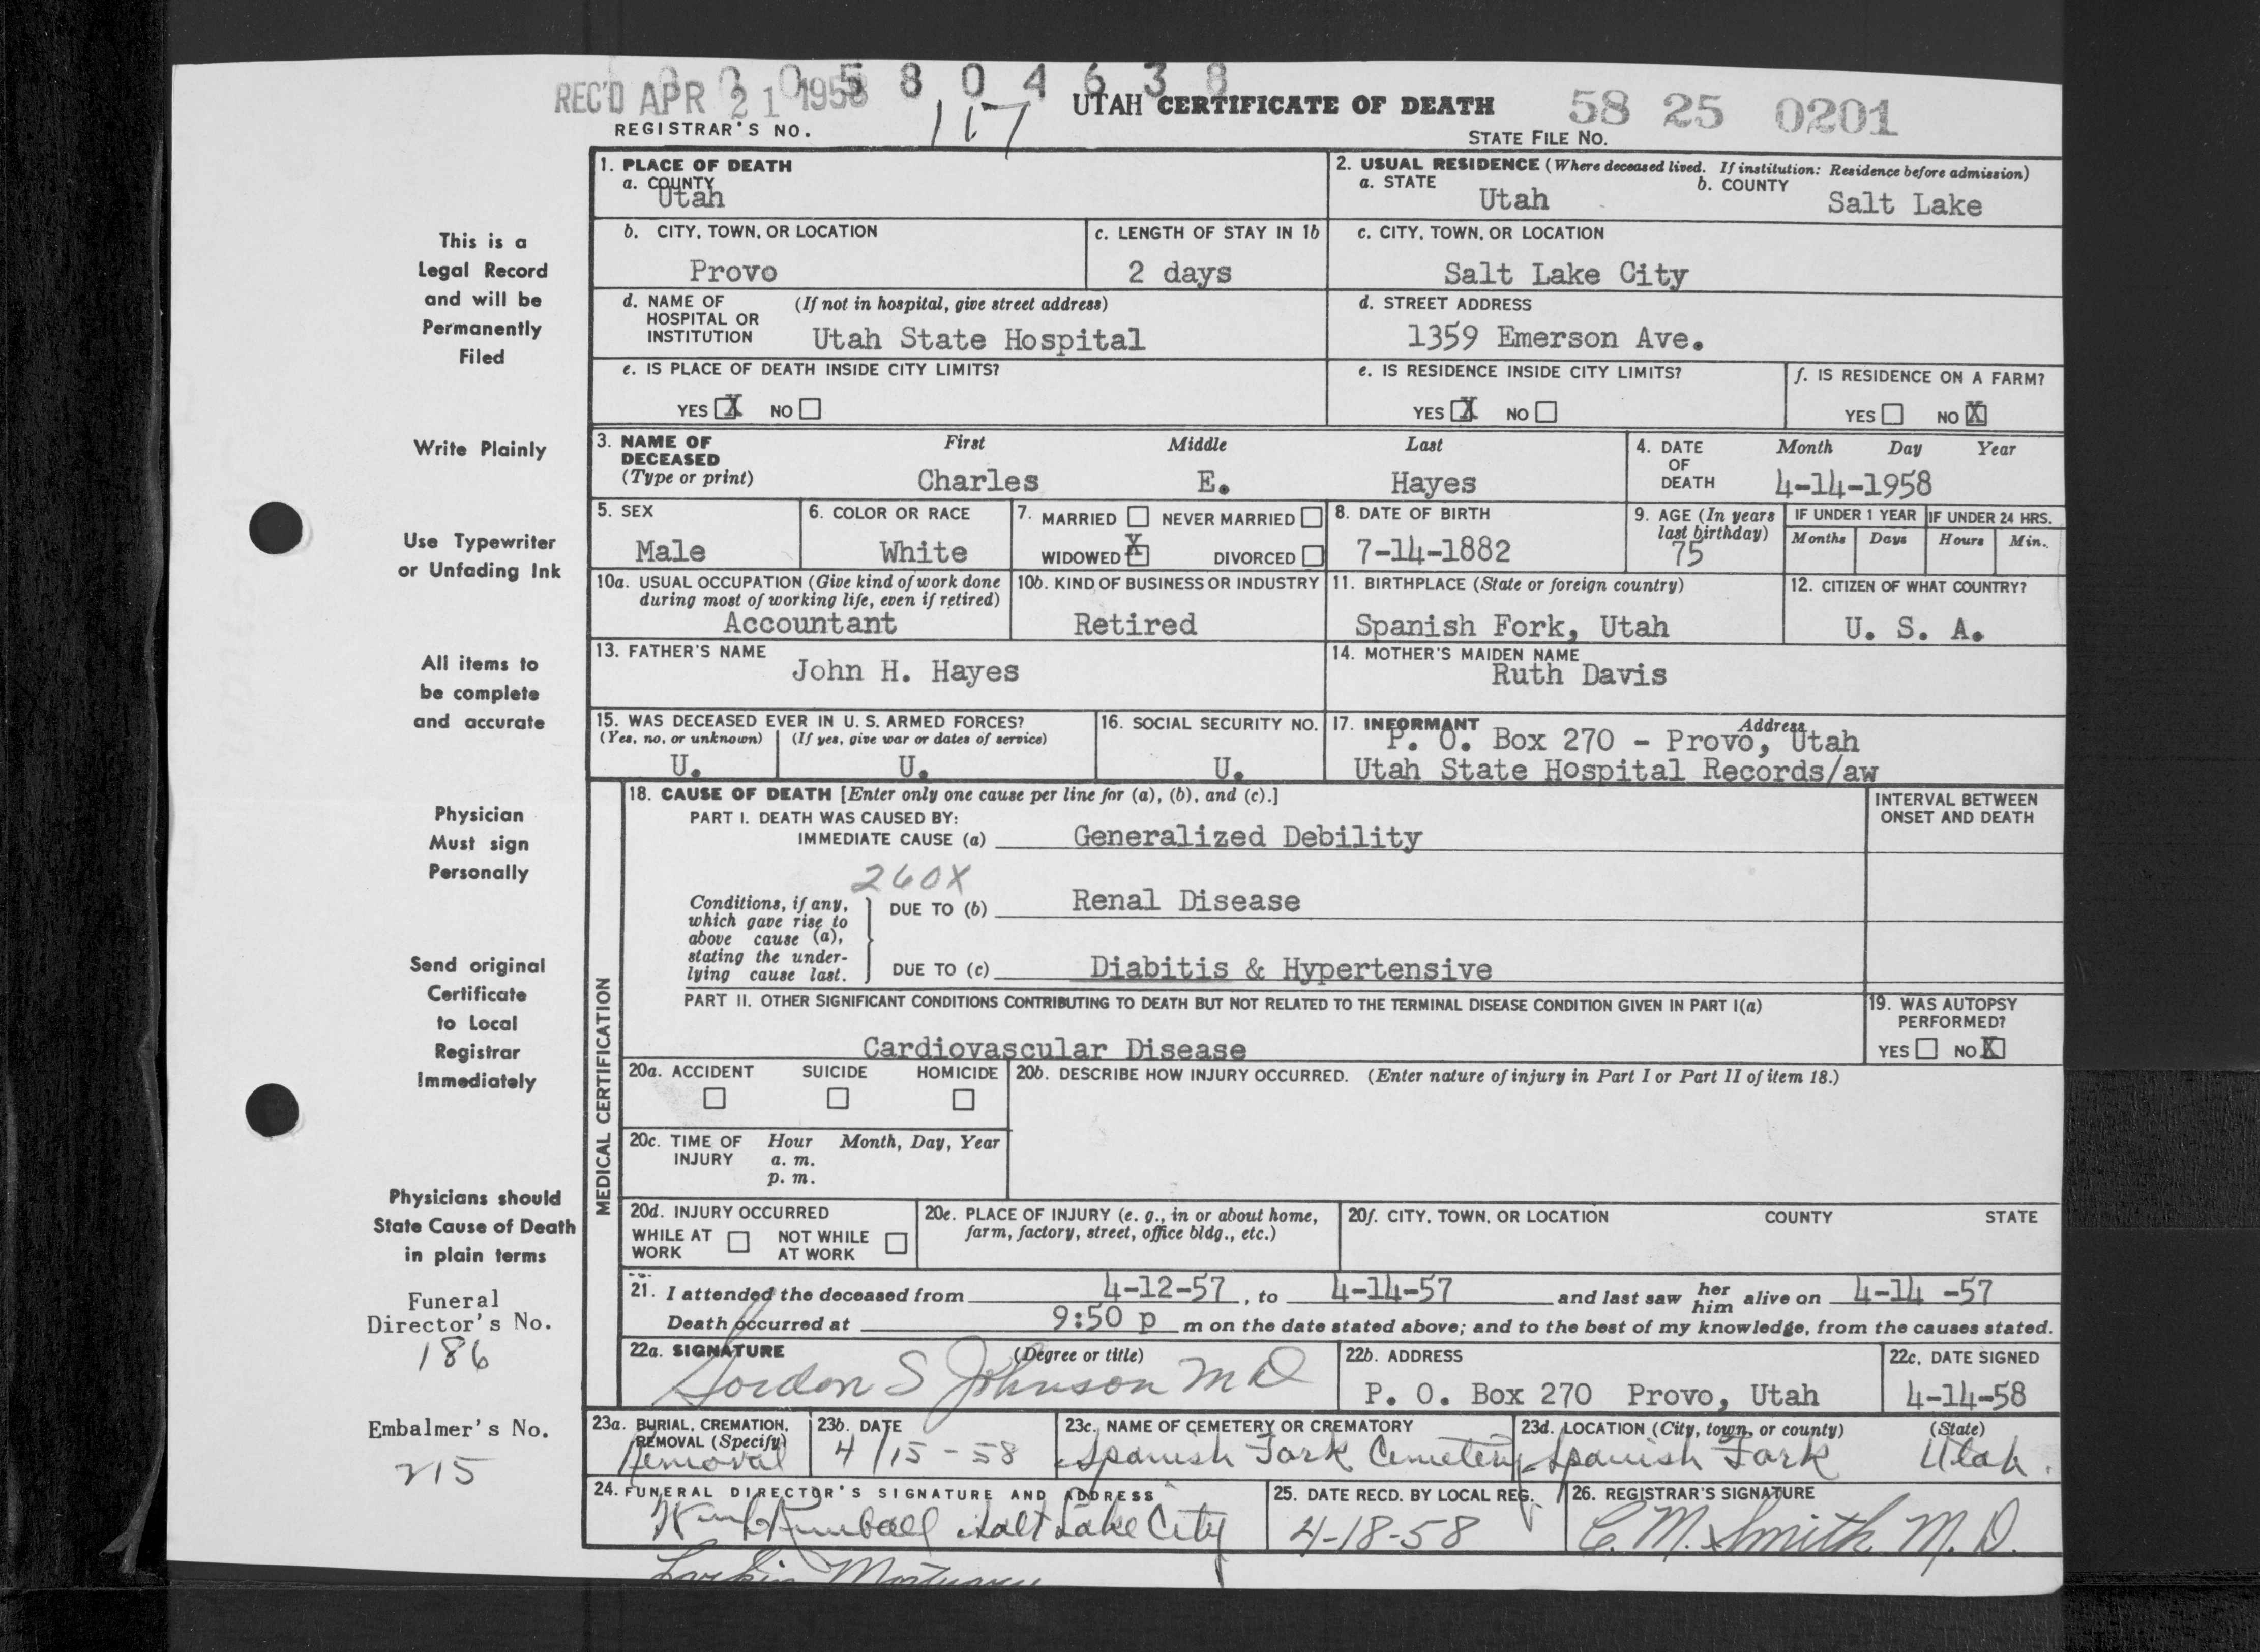 0 0 0 5 8 0 4 6 3 8
REC'D APR 21 1958
117
UTAH CERTIFICATE OF DEATH
58 25 0201
REGISTRAR'S NO.
STATE FILE No.
1. PLACE OF DEATH
a. COUNTY
Utah
2. USUAL RESIDENCE (Where deceased lived. If institution: Residence before admission)
a. STATE Utah b. COUNTY Salt Lake
b. CITY, TOWN, OR LOCATION
Provo
c. LENGTH OF STAY IN 1b
2 days
c. CITY, TOWN, OR LOCATION
Salt Lake City
d. NAME OF HOSPITAL OR INSTITUTION (If not in hospital, give street address)
Utah State Hospital
d. STREET ADDRESS
1359 Emerson Ave.
e. IS PLACE OF DEATH INSIDE CITY LIMITS?
YES X NO
e. IS RESIDENCE INSIDE CITY LIMITS?
YES X NO
f. IS RESIDENCE ON A FARM?
YES NO X
3. NAME OF DECEASED (Type or print)
First Middle Last
Charles E. Hayes
4. DATE OF DEATH
Month Day Year
4-14-1958
5. SEX
Male
6. COLOR OR RACE
White
7. MARRIED NEVER MARRIED
WIDOWED X DIVORCED
8. DATE OF BIRTH
7-14-1882
9. AGE (In years last birthday)
75
IF UNDER 1 YEAR
Months Days
IF UNDER 24 HRS.
Hours Min.
10a. USUAL OCCUPATION (Give kind of work done during most of working life, even if retired)
Accountant
10b. KIND OF BUSINESS OR INDUSTRY
Retired
11. BIRTHPLACE (State or foreign country)
Spanish Fork, Utah
12. CITIZEN OF WHAT COUNTRY?
U. S. A.
13. FATHER'S NAME
John H. Hayes
14. MOTHER'S MAIDEN NAME
Ruth Davis
15. WAS DECEASED EVER IN U. S. ARMED FORCES?
(Yes, no, or unknown) (If yes, give war or dates of service)
U. U.
16. SOCIAL SECURITY NO.
U.
17. INFORMANT Address
P. O. Box 270 - Provo, Utah
Utah State Hospital Records/aw
MEDICAL CERTIFICATION
18. CAUSE OF DEATH [Enter only one cause per line for (a), (b), and (c).]
INTERVAL BETWEEN ONSET AND DEATH
PART I. DEATH WAS CAUSED BY:
IMMEDIATE CAUSE (a) Generalized Debility
260X
Conditions, if any, which gave rise to above cause (a), stating the underlying cause last.
DUE TO (b) Renal Disease
DUE TO (c) Diabitis & Hypertensive
PART II. OTHER SIGNIFICANT CONDITIONS CONTRIBUTING TO DEATH BUT NOT RELATED TO THE TERMINAL DISEASE CONDITION GIVEN IN PART I(a)
Cardiovascular Disease
19. WAS AUTOPSY PERFORMED?
YES NO X
20a. ACCIDENT SUICIDE HOMICIDE
20b. DESCRIBE HOW INJURY OCCURRED. (Enter nature of injury in Part I or Part II of item 18.)
20c. TIME OF INJURY Hour Month, Day, Year
a. m.
p. m.
20d. INJURY OCCURRED
WHILE AT WORK NOT WHILE AT WORK
20e. PLACE OF INJURY (e. g., in or about home, farm, factory, street, office bldg., etc.)
20f. CITY, TOWN, OR LOCATION COUNTY STATE
21. I attended the deceased from 4-12-57, to 4-14-57 and last saw her him alive on 4-14 -57
Death occurred at 9:50 p m on the date stated above; and to the best of my knowledge, from the causes stated.
22a. SIGNATURE (Degree or title)
Gordon S Johnson MD
22b. ADDRESS
P. O. Box 270 Provo, Utah
22c. DATE SIGNED
4-14-58
23a. BURIAL, CREMATION, REMOVAL (Specify)
Removal
23b. DATE
4/15-58
23c. NAME OF CEMETERY OR CREMATORY
Spanish Fork Cemetery
23d. LOCATION (City, town, or county) (State)
Spanish Fork Utah.
24. FUNERAL DIRECTOR'S SIGNATURE AND ADDRESS
Kimball Salt Lake City
Larkin Mortuary
25. DATE RECD. BY LOCAL REG.
4-18-58
26. REGISTRAR'S SIGNATURE
C. M. Smith M. D.
This is a
Legal Record
and will be
Permanently
Filed
Write Plainly
Use Typewriter
or Unfading Ink
All items to
be complete
and accurate
Physician
Must sign
Personally
Send original
Certificate
to Local
Registrar
Immediately
Physicians should
State Cause of Death
in plain terms
Funeral
Director's No.
186
Embalmer's No.
215